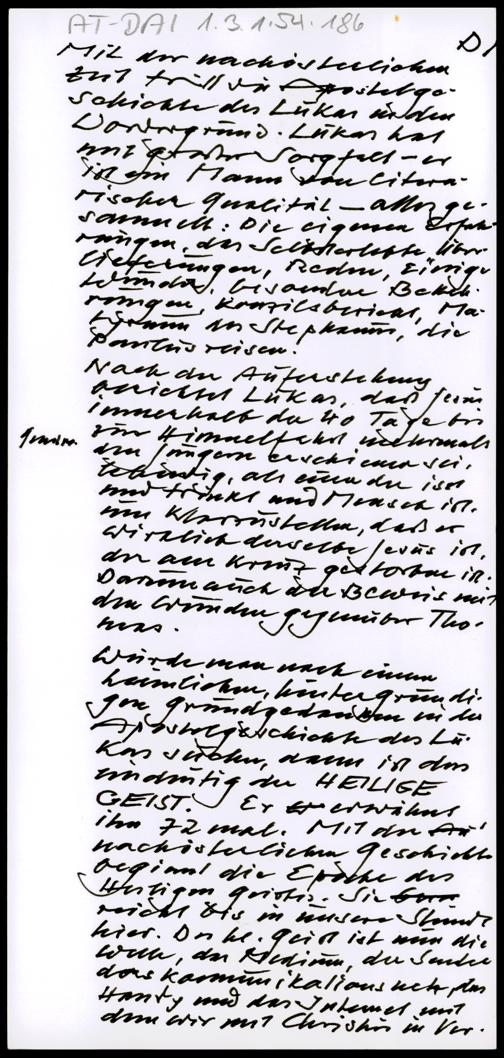 AT-DAI 1.3.1.54.186
DI
Mit der nachösterlichen
Zeit tritt die Apostelge-
schichte des Lukas in den
Vordergrund. Lukas hat
mit großer Sorgfalt – er
ist ein Mann von litera-
rischer Qualität – alles ge-
sammelt: Die eigenen Erfah-
rungen, das Selbsterlebte, Über-
lieferungen, Reden, Einige
Wunder, besondere Bekeh-
rungen, Konzilsbericht, Ma-
tyrium des Stephanus, die
Paulusreisen.
Nach der Auferstehung
berichtet Lukas, daß Jesus
innerhalb der 40 Tage bis
zur Himmelfahrt mehrmals
den Jüngern erschienen sei,
lebendig, als einer der isst
und trinkt und Mensch ist.
um klarzustellen, daß er
wirklich derselbe Jesus ist,
der am Kreuz gestorben ist.
Darum auch der Beweis mit
den Wunden gegenüber Tho-
mas.
Würde man nach einem
heimlichen, hintergründi-
gen Grundgedanken in der
Apostelgeschichte des Lu-
kas suchen, dann ist das
eindeutig der HEILIGE
GEIST. Er erwähnt
ihn 72 mal. Mit der
nachösterlichen Geschichte
beginnt die Epoche des
Heiligen Geistes. Sie
reicht bis in unsere Stunde
hier. Der hl. Geist ist nun die
Welle, das Medium, der Sender
das Kommunikationsnetz, das
Handy und das Internet mit
dem wir mit Christus in Ver-